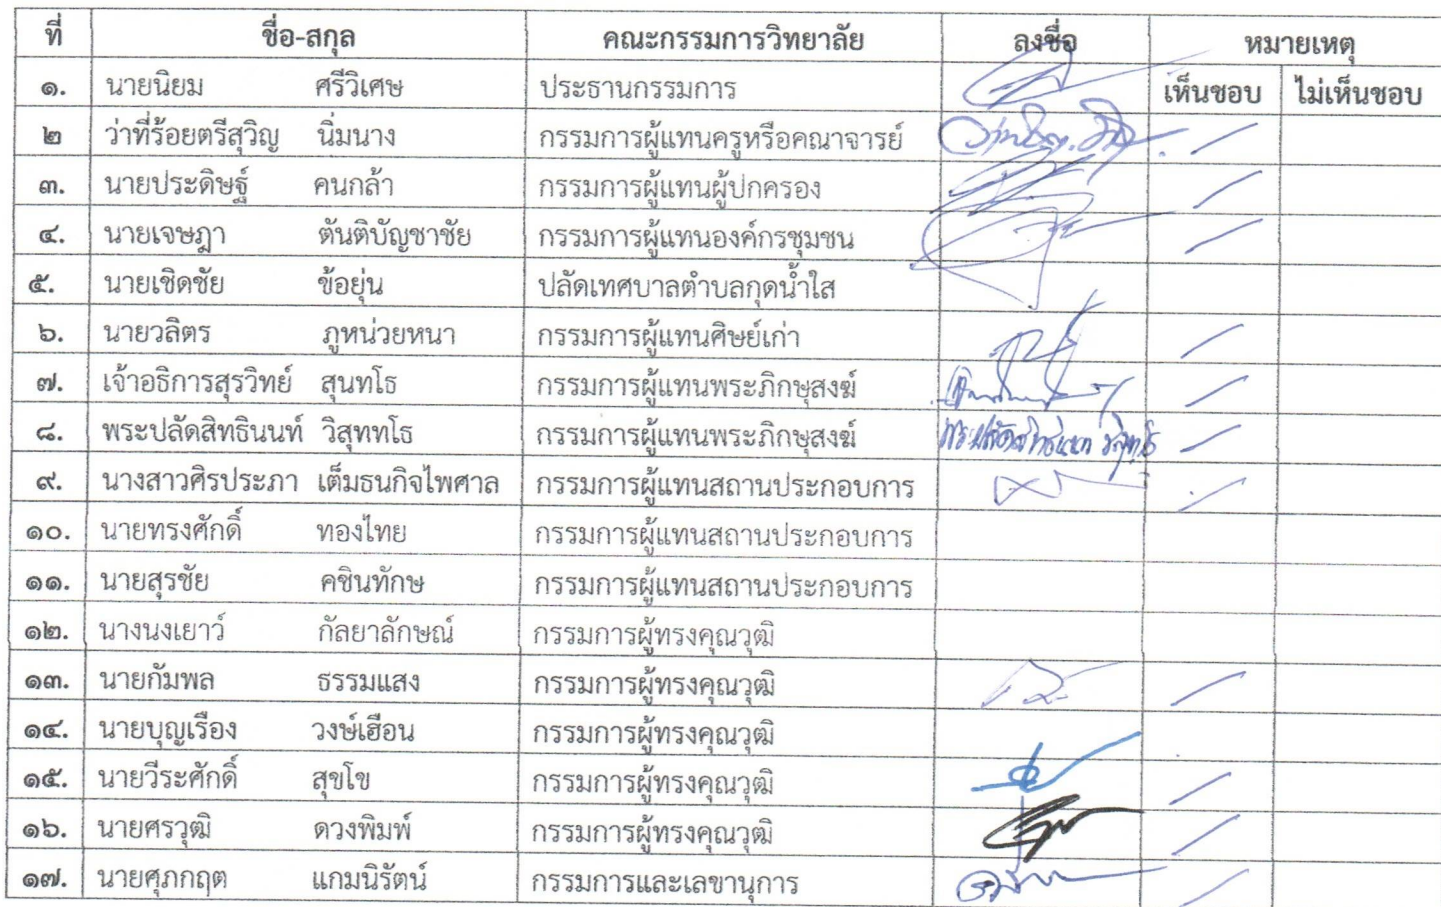 ที่ ชื่อ-สกุล คณะกรรมการวิทยาลัย ลงชื่อ หมายเหตุ
เห็นชอบ ไม่เห็นชอบ
๑. นายนิยม ศรีวิเศษ ประธานกรรมการ
๒ ว่าที่ร้อยตรีสุวิญ นิ่มนาง กรรมการผู้แทนครูหรือคณาจารย์
๓. นายประดิษฐ์ คนกล้า กรรมการผู้แทนผู้ปกครอง
๔. นายเจษฎา ตันติบัญชาชัย กรรมการผู้แทนองค์กรชุมชน
๕. นายเชิดชัย ข้อยุ่น ปลัดเทศบาลตำบลกุดน้ำใส
๖. นายวลิตร ภูหน่วยหนา กรรมการผู้แทนศิษย์เก่า
๗. เจ้าอธิการสุรวิทย์ สุนทโธ กรรมการผู้แทนพระภิกษุสงฆ์
๘. พระปลัดสิทธินนท์ วิสุททโธ กรรมการผู้แทนพระภิกษุสงฆ์
๙. นางสาวศิรประภา เต็มธนกิจไพศาล กรรมการผู้แทนสถานประกอบการ
๑๐. นายทรงศักดิ์ ทองไทย กรรมการผู้แทนสถานประกอบการ
๑๑. นายสุรชัย คชินทักษ กรรมการผู้แทนสถานประกอบการ
๑๒. นางนงเยาว์ กัลยาลักษณ์ กรรมการผู้ทรงคุณวุฒิ
๑๓. นายกัมพล ธรรมแสง กรรมการผู้ทรงคุณวุฒิ
๑๔. นายบุญเรือง วงษ์เฮือน กรรมการผู้ทรงคุณวุฒิ
๑๕. นายวีระศักดิ์ สุขโข กรรมการผู้ทรงคุณวุฒิ
๑๖. นายศรวุฒิ ดวงพิมพ์ กรรมการผู้ทรงคุณวุฒิ
๑๗. นายศุภกฤต แกมนิรัตน์ กรรมการและเลขานุการ